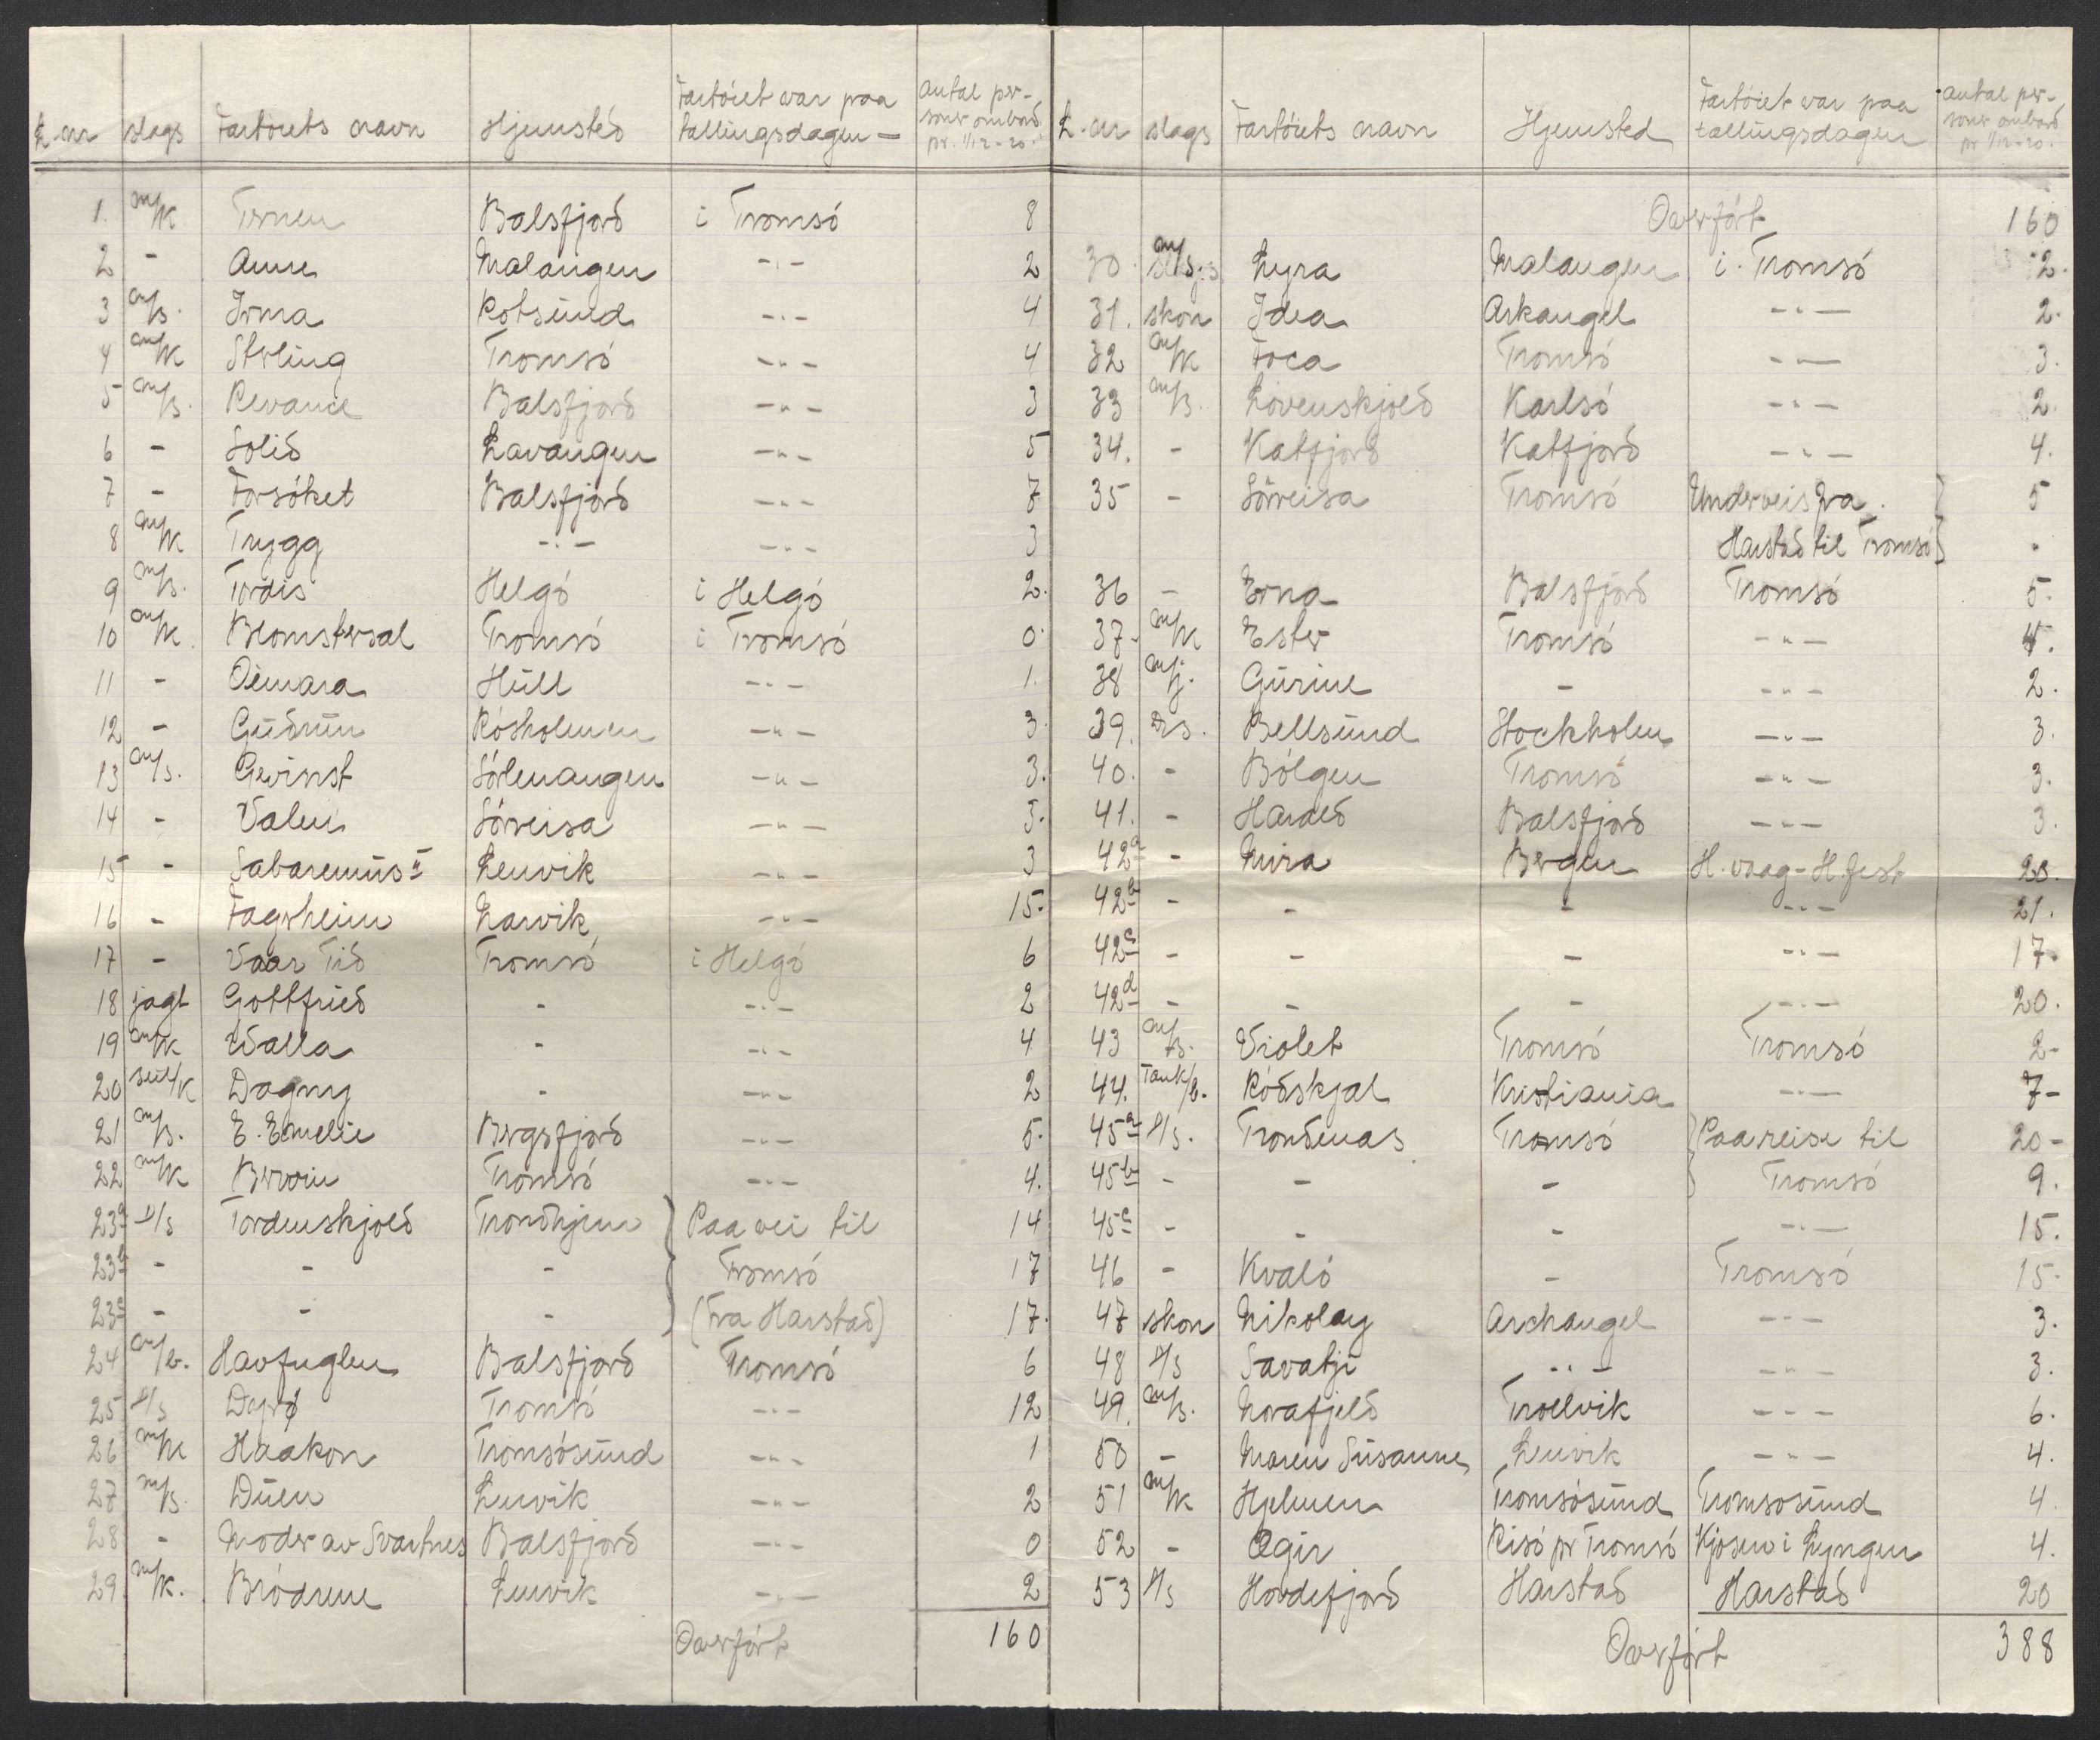 L.nr slags Fartöiets navn Hjemsted Fartöiet var paa tællingsdagen – Antal personer ombord pr. 1/12-20.
1. m/k Ternen Balsfjord i Tromsö 8
2 - Anne Malangen -"- 2
3 m/s. Irma Rotsund -"- 4
4 m/k Sterling Tromsö -"- 4
5 m/s. Revance Balsfjord -"- 3
6 - Solid Lavangen -"- 5
7 - Forsöket Balsfjord -"- 7
8 m/k Trygg -"- -"- 3
9 m/s. Tordis Helgö i Helgö 2.
10 m/k. Blomstersal Tromsö i Tromsö 0.
11 - Oimara Hull -"- 1.
12 - Gudrun Rösholmen -"- 3.
13 m/s. Gevinst Sörlenangen -"- 3.
14 - Valen Sörreisa -"- 3.
15 - Sabaremus II Lenvik -"- 3
16 - Fagerheim Larvik -"- 15.
17 - Vaar Tid Tromsö i Helgö 6
18 jagt Gottfried - -"- 2
19 m/k Walla - -"- 4
20 seil/k Dagny - -"- 2
21 m/s. E. Emelie Bergsfjord -"- 5.
22 m/k Bervin Tromsö -"- 4.
23a d/s Tordenskjold Trondhjem } Paa vei til 14
23b - - - Tromsö 17
23c - - - (Fra Harstad) 17.
24 m/b. Havfuglen Balsfjord Tromsö 6
25 d/s Dafjö Tromsö -"- 12
26 m/k Haakon Tromsösund -"- 1
27 m/s. Duen Lenvik -"- 2
28 - Moder av Svartnes Balsfjord -"- 0
29 m/k. Brödrene Lenvik -"- 2
Overfört 160
L.nr slags Fartöiets navn Hjemsted Fartöiet var paa tællingsdagen Antal personer ombord pr 1/12-20.
Overfört 160
30. m/s. Lyra Malangen i. Tromsö 2.
31. skon Idea Arkangel -"- 2.
32 m/k Foca Tromsö -"- 3.
33 m/s. Lövenskjold Karlsö -"- 2.
34. - Katfjord Katfjord -"- 4.
35 - Sörreisa Tromsö Underveis fra } 5
Harstad til Tromsö
36 - Erna Balsfjord Tromsö 5.
37. m/k Ester Tromsö -"- 4.
38 m/j. Gurine - -"- 2.
39. m/s. Bellsund Stockholm -"- 3.
40. - Bölgen Tromsö -"- 3.
41. - Harald Balsfjord -"- 3.
42a - Mira Bergen H.vaag - H.fest 20.
42b - - - -"- 21.
42c - - - -"- 17.
42d - - - -"- 20.
43 m/s. Violet Tromsö Tromsö 2-
44. Tank/b. Rödskjæl Kristiania -"- 7-
45a d/s. Trondenæs Tromsö } Paa reise til 20-
45b - - - Tromsö 9.
45c - - - -"- 15.
46 - Kvalö - Tromsö 15-
47 skon Nikolay Archangel -"- 3.
48 d/s Savatji -"- -"- 3.
49. m/s. Norafjeld Trollvik -"- 6.
50 - Maren Susanne Lenvik -"- 4.
51 m/k Hjelmen Tromsösund Tromsosund 4.
52 - Ægir Risö pr Tromsö Kjosen i Lyngen 4.
53 d/s Hordefjord Harstad Harstad 20
Overfört 388